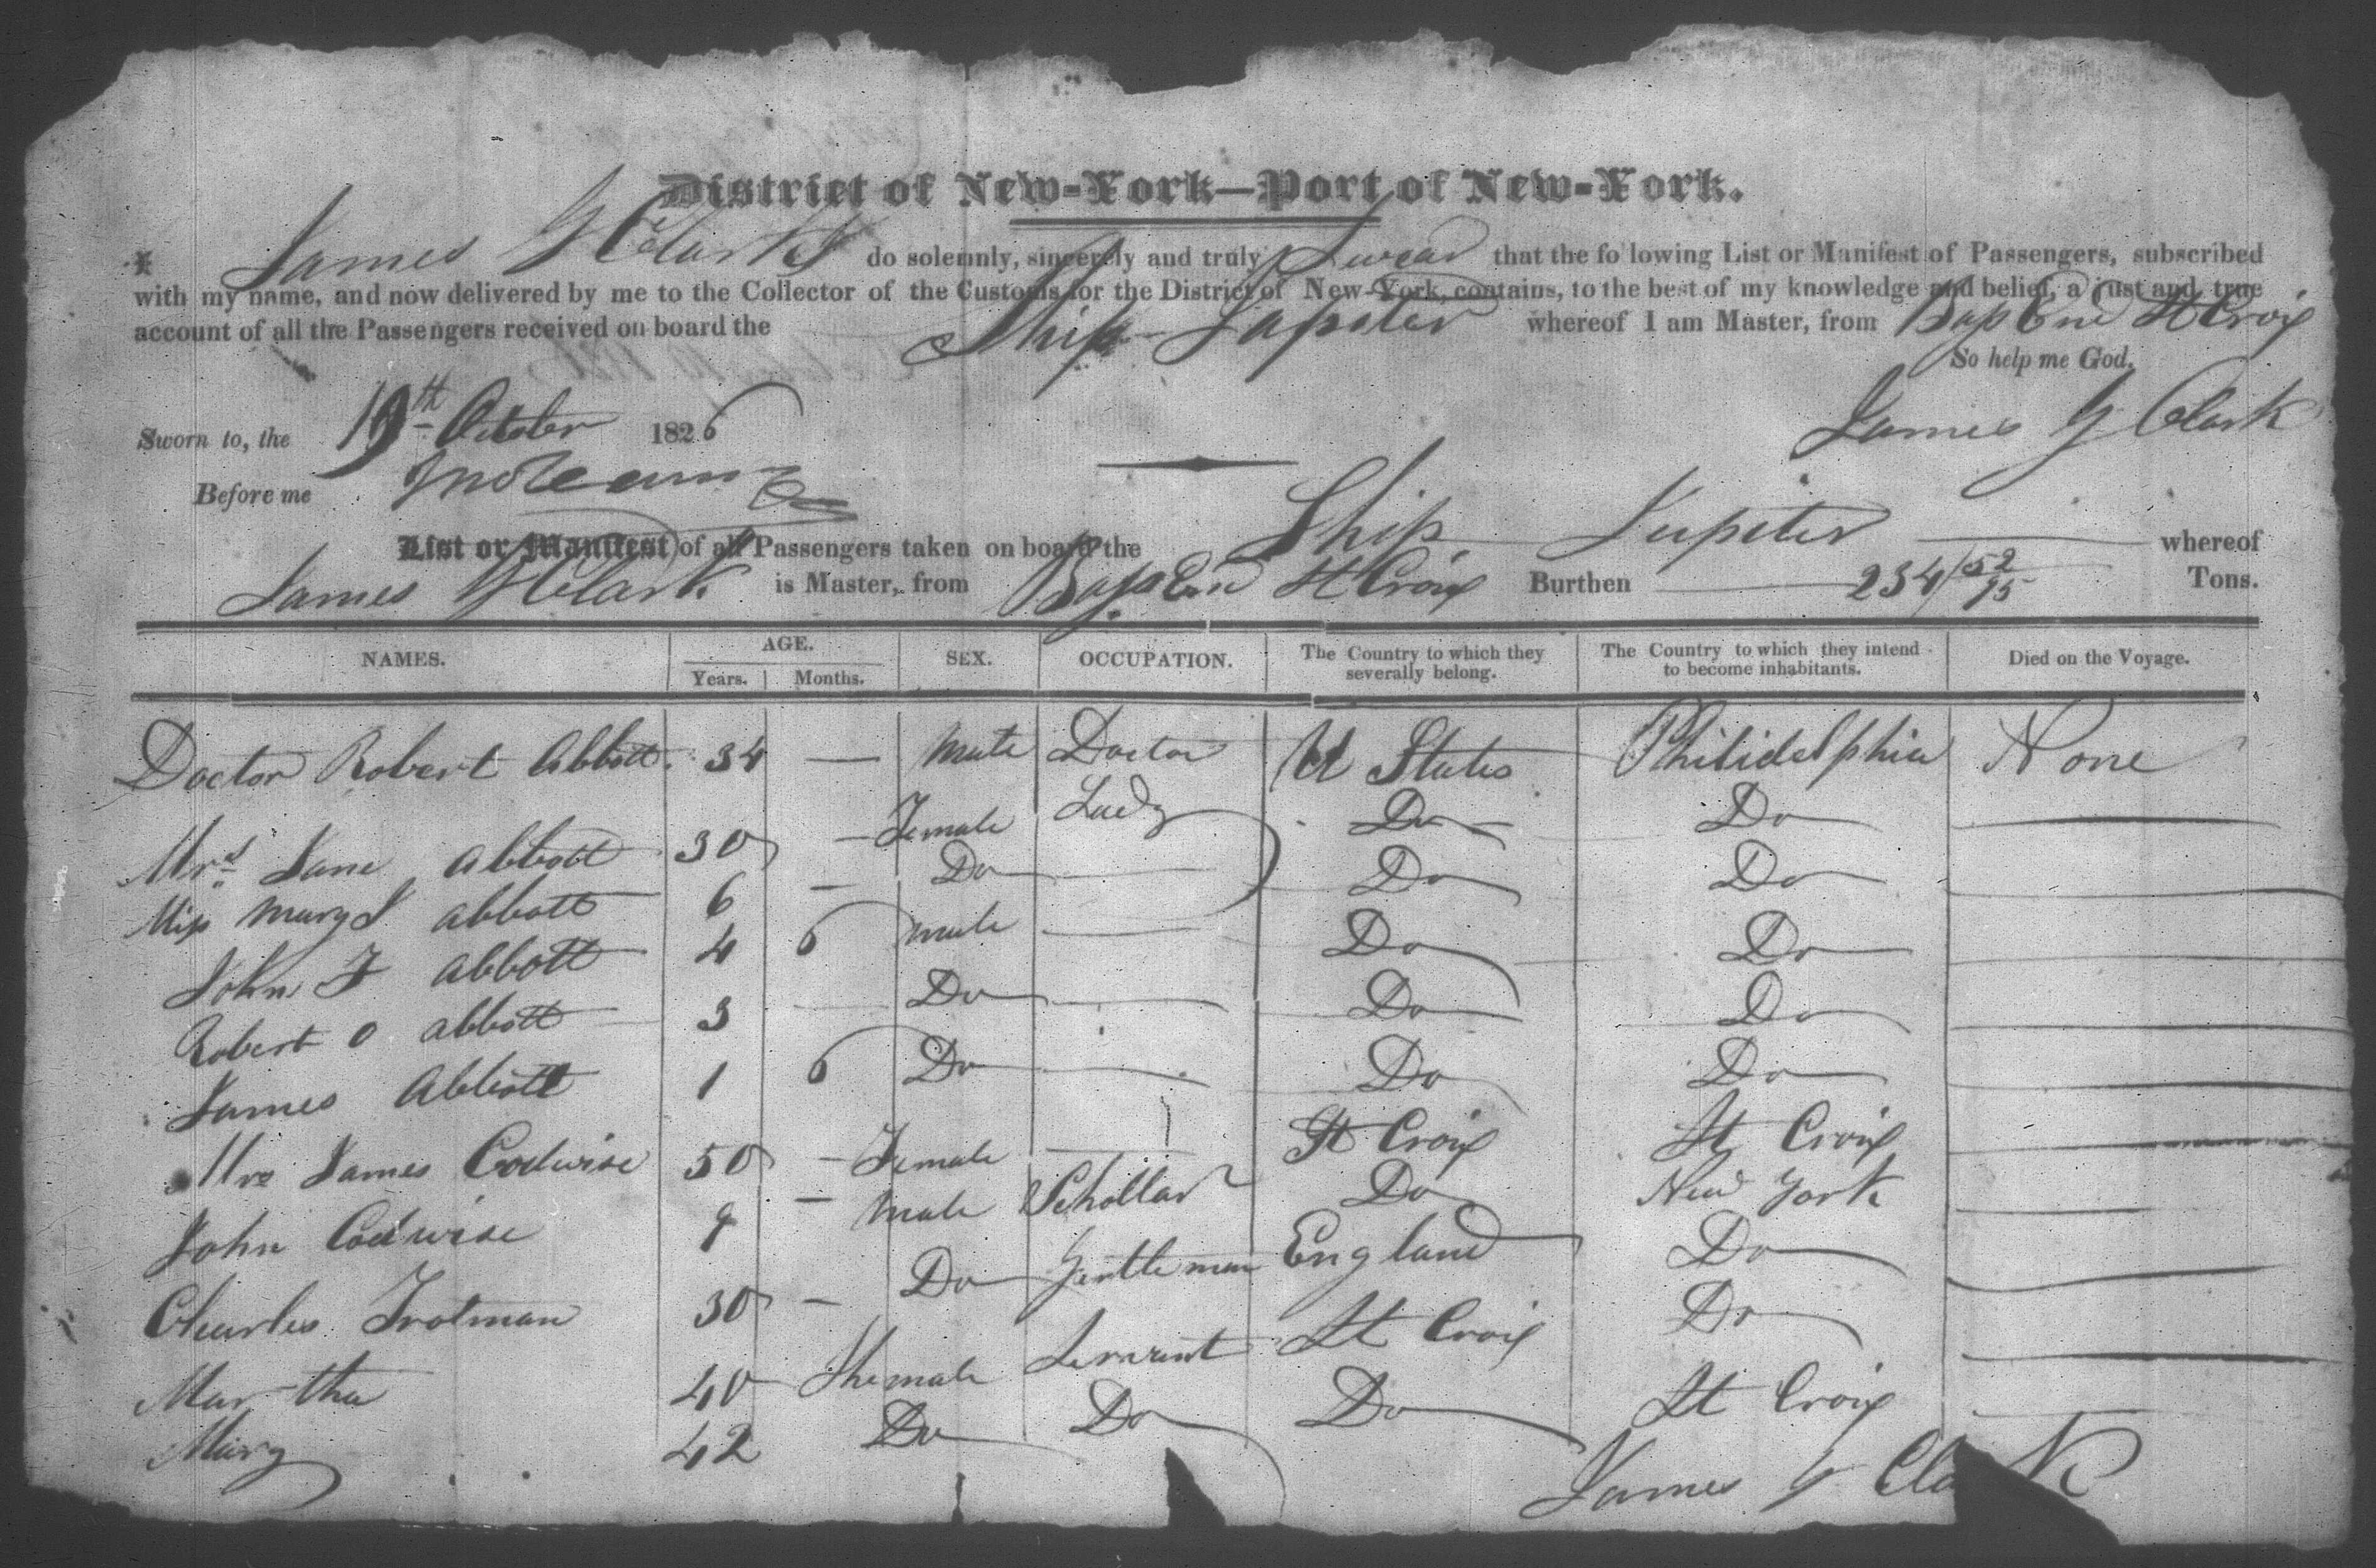 District of New-York—Port of New-York.
I James G Clark do solemnly, sincerely and truly Swear that the following List or Manifest of Passengers, subscribed
with my name, and now delivered by me to the Collector of the Customs for the District of New-York, contains, to the best of my knowledge and belief, a just and true
account of all the Passengers received on board the Ship Jupiter whereof I am Master, from Bass End St Croix
So help me God.
Sworn to, the 19th October 1826 James G Clark
Before me
List or Manifest of all Passengers taken on board the Ship Jupiter whereof
James G Clark is Master, from Bass End St Croix Burthen 234 52/95 Tons.
NAMES. AGE. SEX. OCCUPATION. The Country to which they severally belong. The Country to which they intend to become inhabitants. Died on the Voyage.
Years. Months.
Doctor Robert Abbott. 34 — Male Doctor U States Philidelphia None
Mrs Jane Abbott 30 — Female Lady Do Do
Miss Mary J Abbott 6 — Do Do Do
John F Abbott 4 6 male Do Do
Robert O Abbott 3 Do Do Do
James Abbott 1 6 Do Do Do
Mrs James Codwise 50 — Female St Croix St Croix
John Codwise 9 — Male Schollar Do New York
Charles Trotman 30 — Do Gentleman England Do
Martha 40 Shemale Servant St Croix Do
Mary 42 Do Do Do St Croix
James G Clark